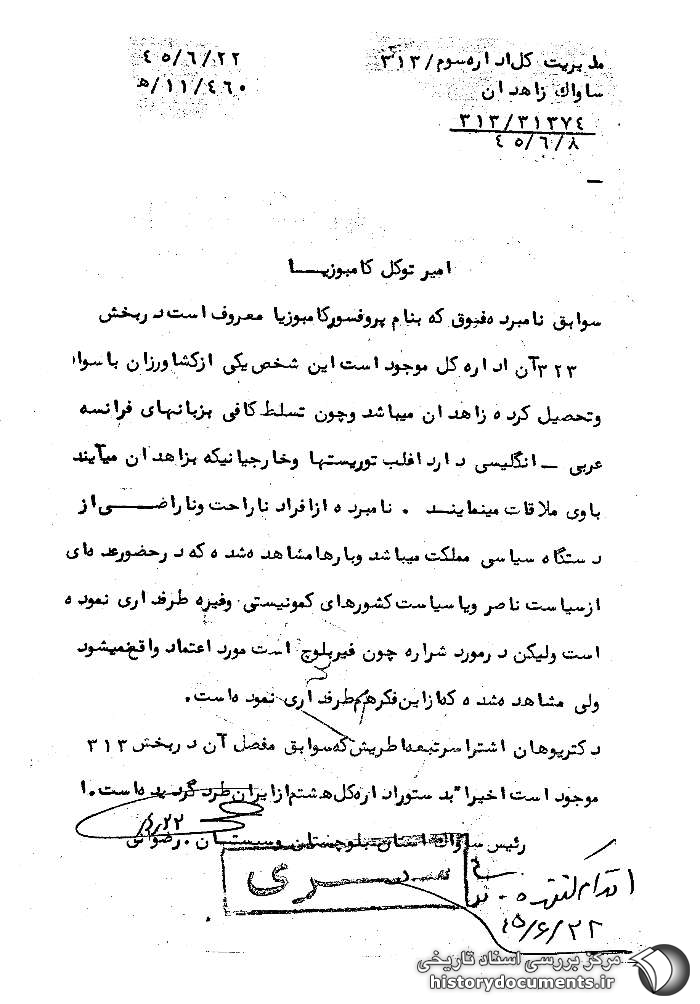 مدیریت کل اداره سوم/۳۱۳
ساواک زاهدان
۳۱۳/۳۱۳۷٤
٤٥/٦/۸
٤٥/٦/۲۲
۱۱/٤٦۰/ھ
امیر توکل کامبوزیا
سوابق نامبرده فوق که بنام پروفسور کامبوزیا معروف است در بخش
۳۲۳ آن اداره کل موجود است این شخص یکی از کشاورزان با سواد
و تحصیل کرده زاهدان میباشد و چون تسلط کافی بزبانهای فرانسه
عربی - انگلیسی دارد اغلب توریستها و خارجیانیکه بزاهدان میآیند
با وی ملاقات مینمایند . نامبرده از افراد ناراحت و ناراضی از
دستگاه سیاسی مملکت میباشد و بارها مشاهده شده که در حضور عده ای
از سیاست ناصر و یا سیاست کشورهای کمونیستی و غیره طرفداری نموده
است ولیکن در مورد شراره چون غیر بلوچ است مورد اعتماد واقع نمیشود
ولی مشاهده شده که از این فکر هم طرفداری نموده است.
دکتر یوهان اشتراسر تبعه اطریش که سوابق مفصل آن در بخش ۳۱۳
موجود است اخیرا" بدستور اداره کل هشتم از ایران طرد گردیده است.ا
رئیس ساواک استان بلوچستان و سیستان . رضوانی
سری
اقدام کننده
٤٥/٦/۲۲
مرکز بررسی اسناد تاریخی
historydocuments.ir